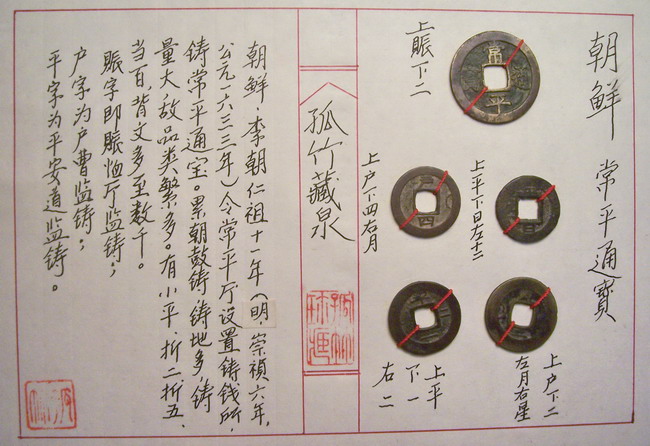 朝鲜 常平通寶
上賬下二
常平
上平下日左十二
上户下四右月
四
上户下二
左月右星
上平
下一
右二
孤竹藏泉
朝鲜,李朝仁祖十一年(明,崇禎六年,
公元一六三三年)令常平厅设置铸钱所,
铸常平通宝。累朝鼓铸,铸地多,铸
量大,故品类繁多。有小平、折二折五、
当百,背文多至数千。
賬字即賬恤厅监铸;
户字为户曹监铸;
平字为平安道监铸。